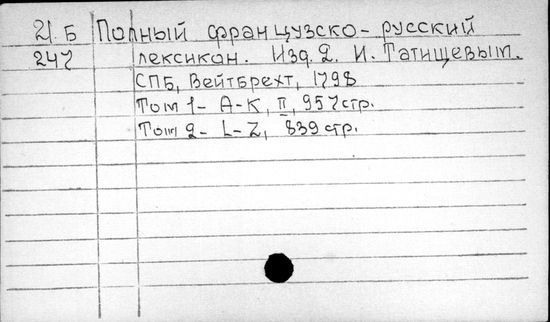 21.Б Полный французско-русский
247 лексикон. Изд. 2. И. Татищевым.
СПБ, Вейтбрехт, 1798
Том 1- А-К, II, 957стр.
Том 2- L-Z, 839 стр.